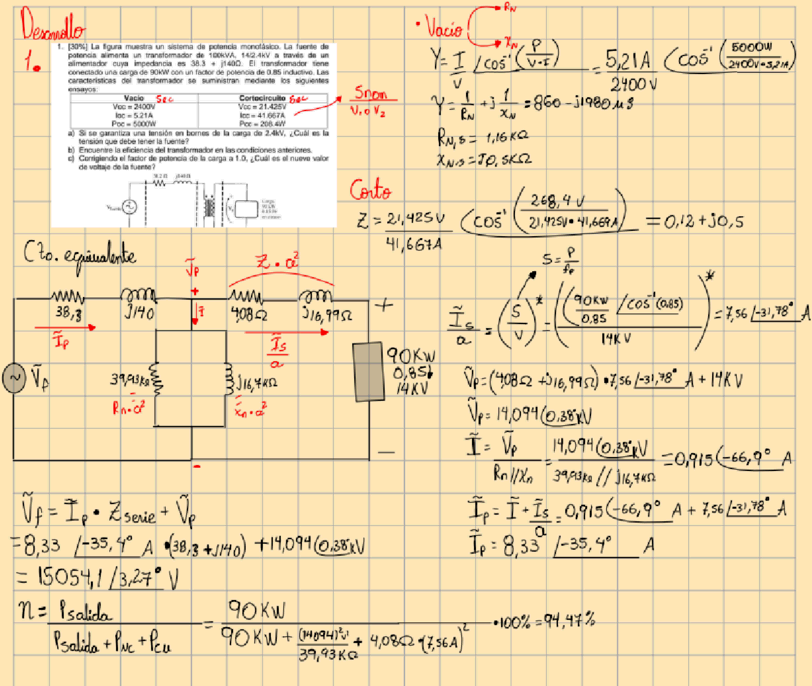 Desarrollo
1.
1. [30%] La figura muestra un sistema de potencia monofásico. La fuente de
potencia alimenta un transformador de 100kVA, 14/2.4kV a través de un
alimentador cuya impedancia es 38.3 + j140Ω. El transformador tiene
conectado una carga de 90KW con un factor de potencia de 0.85 inductivo. Las
características del transformador se suministran mediante los siguientes
ensayos:
Vacío Sec Cortocircuito Sec
Vcc = 2400V Vcc = 21.425V
Icc = 5.21A Icc = 41.667A
Pcc = 5000W Pcc = 268.4W
Snom
V1 o V2
a) Si se garantiza una tensión en bornes de la carga de 2.4kV, ¿Cuál es la
tensión que debe tener la fuente?
b) Encuentre la eficiencia del transformador en las condiciones anteriores.
c) Corrigiendo el factor de potencia de la carga a 1.0, ¿Cuál es el nuevo valor
de voltaje de la fuente?
38.2 Ω j140Ω
• Vacío
RN
XN
Y = I/V /cos⁻¹(P/V·I) = 5,21A/2400V (cos⁻¹(5000W/2400V•5,21A)
Y = 1/RN + j 1/XN = 860 - j1980 μs
RN,s = 1,16KΩ
XN,s = J0,5KΩ
Corto
Z = 21,425V/41,667A (cos⁻¹(268,4 V/21,425V•41,667A) = 0,12+j0,5
S = P/fp
Cto. equivalente
Ṽp
Z•a²
38,3
j140
4,08Ω
j16,99Ω
Ĩp
Ĩs/a
Ṽf
39,93kΩ
Rn•a²
j16,7kΩ
Xn•a²
90KW
0,85↓
14KV
Ĩs/a = (S/V)* = ((90KW/0,85 /cos⁻¹(0.85))/14KV)* = 7,56 /-31,78° A
Ṽp = (4,08Ω + j16,99Ω)•7,56 /-31,78° A + 14KV
Ṽp = 14,094(0,38°kV
Ĩ = Ṽp/Rn//Xn = 14,094(0,38°kV/39,93kΩ // j16,7kΩ = 0,915(-66,9° A
Ĩp = Ĩ + Ĩs/a = 0,915(-66,9° A + 7,56 /-31,78° A
Ĩp = 8,33 /-35,4° A
Ṽf = Ĩp • Zserie + Ṽp
= 8,33 /-35,4° A •(38,3+j140) + 14,094(0,38°kV
= 15054,1 /3,27° V
n = Psalida/Psalida + Pnc + Pcu = 90KW/90KW + (14094)²V/39,93KΩ + 4,08Ω•(7,56A)² •100% = 94,47%